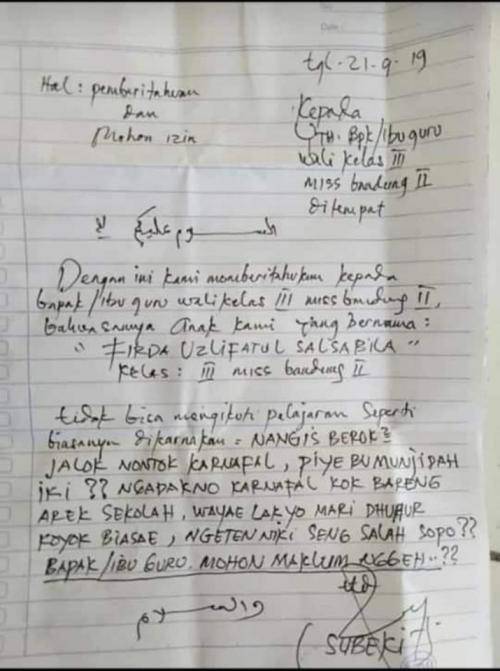 tgl. 21-9-19
Hal : pemberitahuan
dan
Mohon izin
Kepada
YTH. Bpk/ibu guru
wali kelas III
miss bandung II
ditempat
السلام عليكم
Dengan ini kami memberitahukan kepada
bapak/ibu guru wali kelas III miss bandung II,
bahwasannya anak kami yang bernama :
" FIRDA UZLIFATUL SALSABILA "
kelas : III miss bandung II
tidak bisa mengikuti pelajaran seperti
biasanya dikarnakan = NANGIS BEROK²
JALOK NONTOK KARNAFAL, PIYE BU MUNJIDAH
IKI ?? NGADAKNO KARNAFAL KOK BARENG
AREK SEKOLAH, WAYAE LAK YO MARI DHUHUR
KOYOK BIASAE, NGETEN NIKI SENG SALAH SOPO ??
BAPAK/IBU GURU. MOHON MAKLUM NGGEH..??
ttd
والسلام
( SUBEKI )